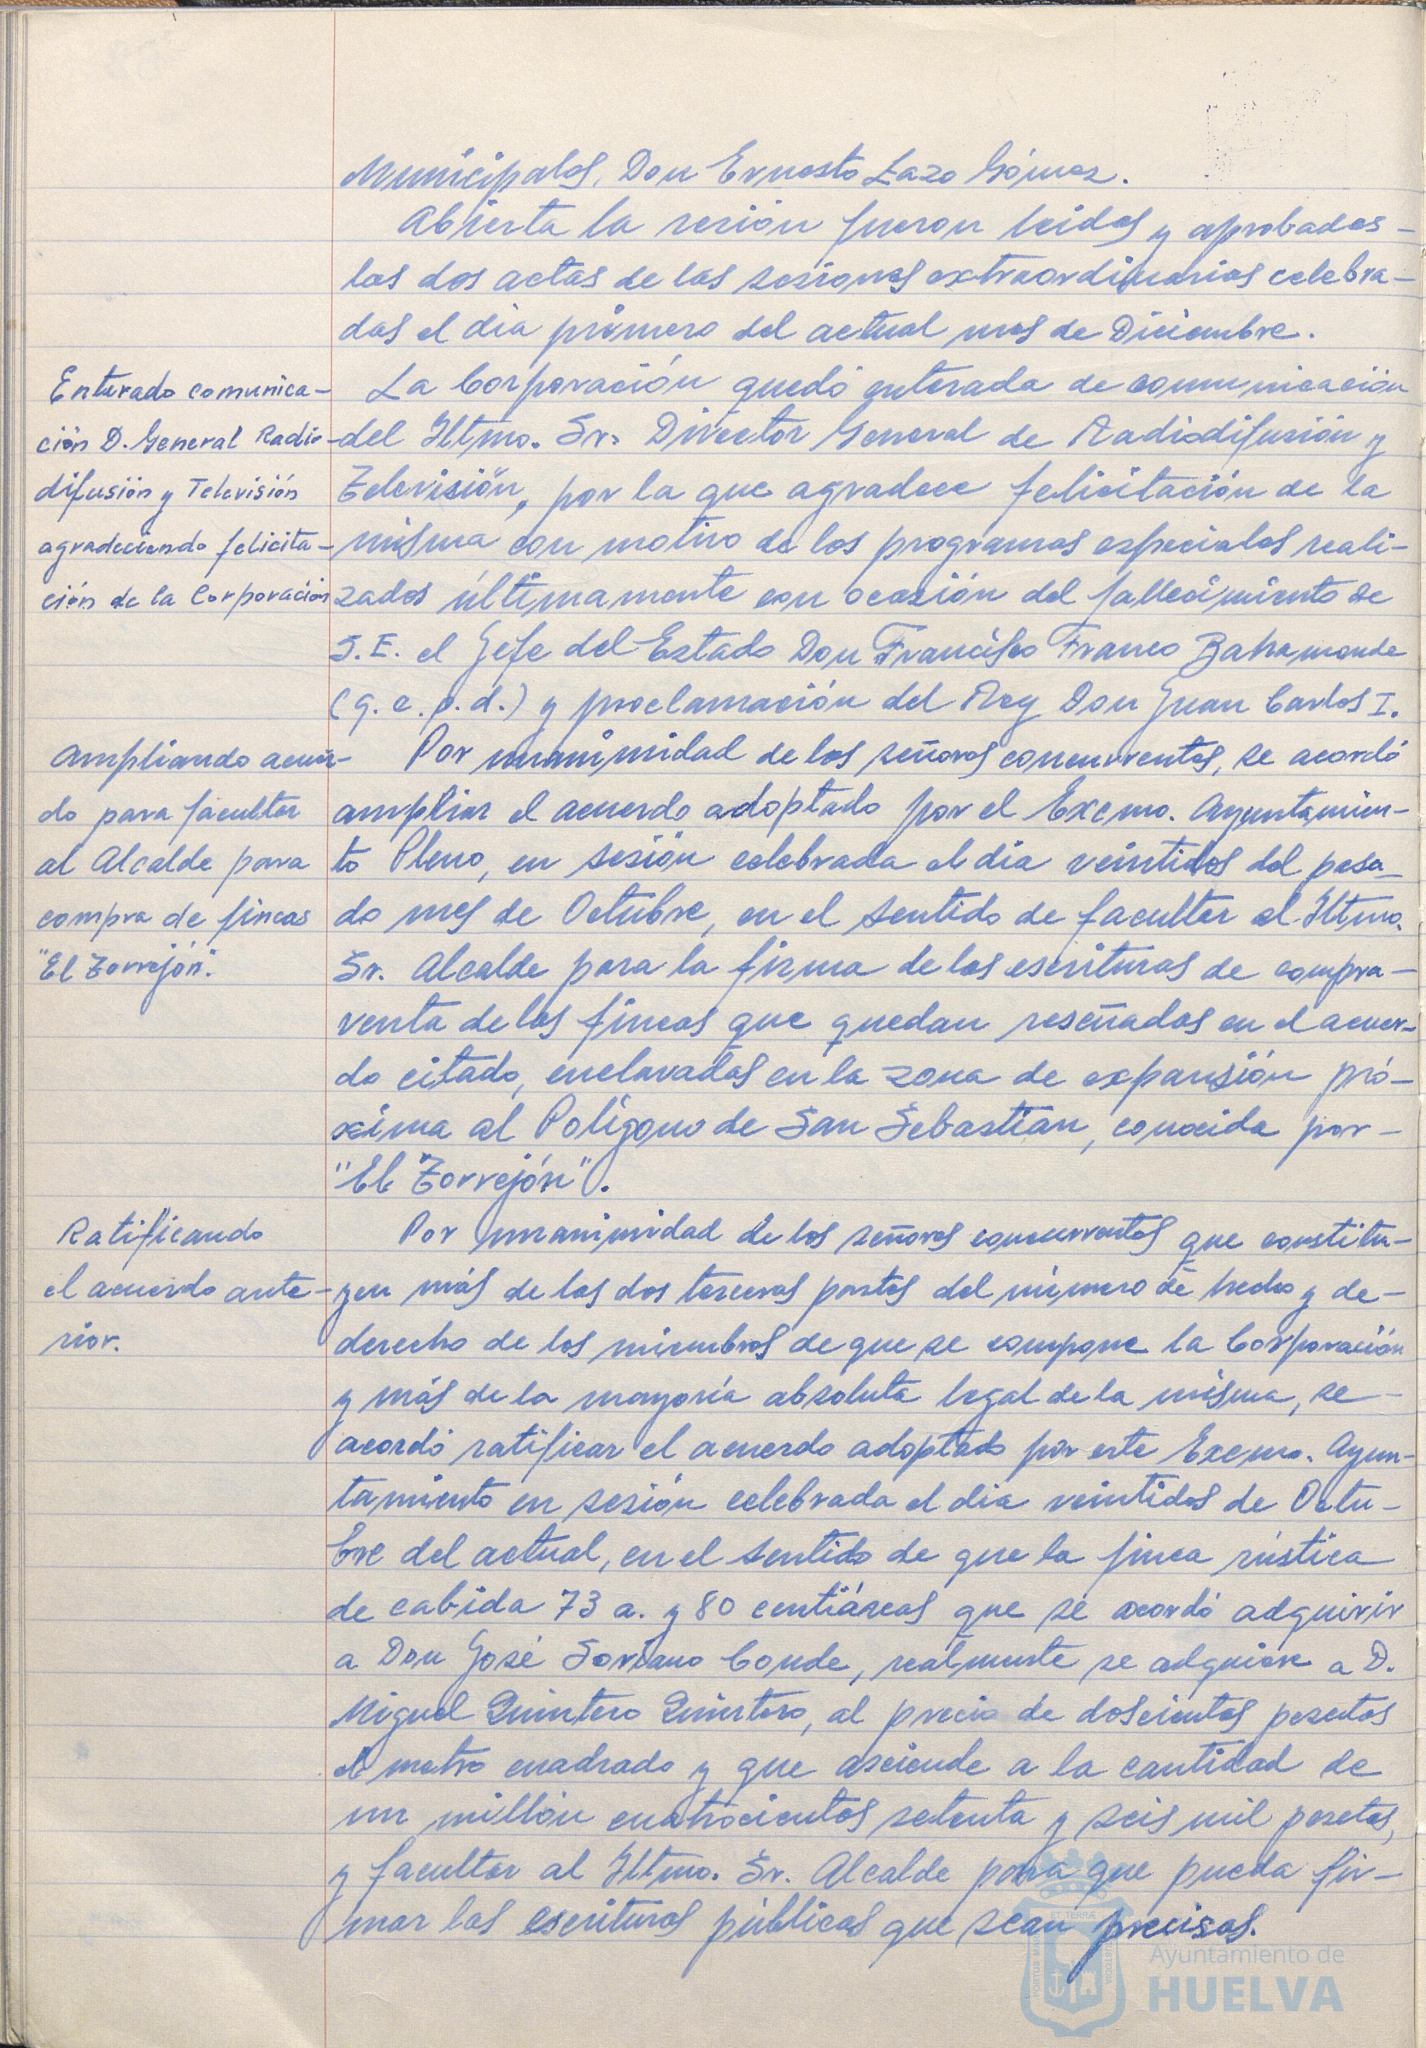 Municipales, Don Ernesto Lazo Gómez.
Abierta la sesión fueron leidas y aprobadas -
las dos actas de las sesiones extraordinarias celebra-
das el dia primero del actual mes de Diciembre.
Enterado comunica-
ción D. General Radio-
difusión y Televisión
agradeciendo felicita-
ción de la Corporación
La Corporación quedó enterada de comunicación
del Iltmo. Sr. Director General de Radiodifusión y
Televisión, por la que agradece felicitación de la
misma con motivo de los programas especiales reali-
zados últimamente con ocasión del fallecimiento de
S.E. el Jefe del Estado Don Francisco Franco Bahamonde
(q.e.p.d.) y proclamación del Rey Don Juan Carlos I.
Ampliando acuer-
do para facultar
al Alcalde para
compra de fincas
"El Torrejón".
Por unanimidad de los señores concurrentes, se acordó
ampliar el acuerdo adoptado por el Excmo. Ayuntamien-
to Pleno, en sesión celebrada el dia veintidos del pasa-
do mes de Octubre, en el sentido de facultar al Iltmo.
Sr. Alcalde para la firma de las escrituras de compra-
venta de las fincas que quedan reseñadas en el acuer-
do citado, enclavadas en la zona de expansión pró-
xima al Polígono de San Sebastian, conocida por -
"El Torrejón".
Ratificando
el acuerdo ante-
rior.
Por unanimidad de los señores concurrentes que constitu-
yen más de las dos terceras partes del número de hecho y de-
derecho de los miembros de que se compone la Corporación
y más de la mayoría absoluta legal de la misma, se -
acordó ratificar el acuerdo adoptado por este Excmo. Ayun-
tamiento en sesión celebrada el dia veintidos de Octu-
bre del actual, en el sentido de que la finca rústica
de cabida 73 a. y 80 centiáreas que se acordó adquirir
a Don José Soriano Conde, realmente se adquiere a D.
Miguel Quintero Quintero, al precio de doscientas pesetas
el metro cuadrado y que asciende a la cantidad de
un millón cuatrocientas setenta y seis mil pesetas,
y facultar al Iltmo. Sr. Alcalde para que pueda fir-
mar las escrituras públicas que sean precisas.
Ayuntamiento de
HUELVA